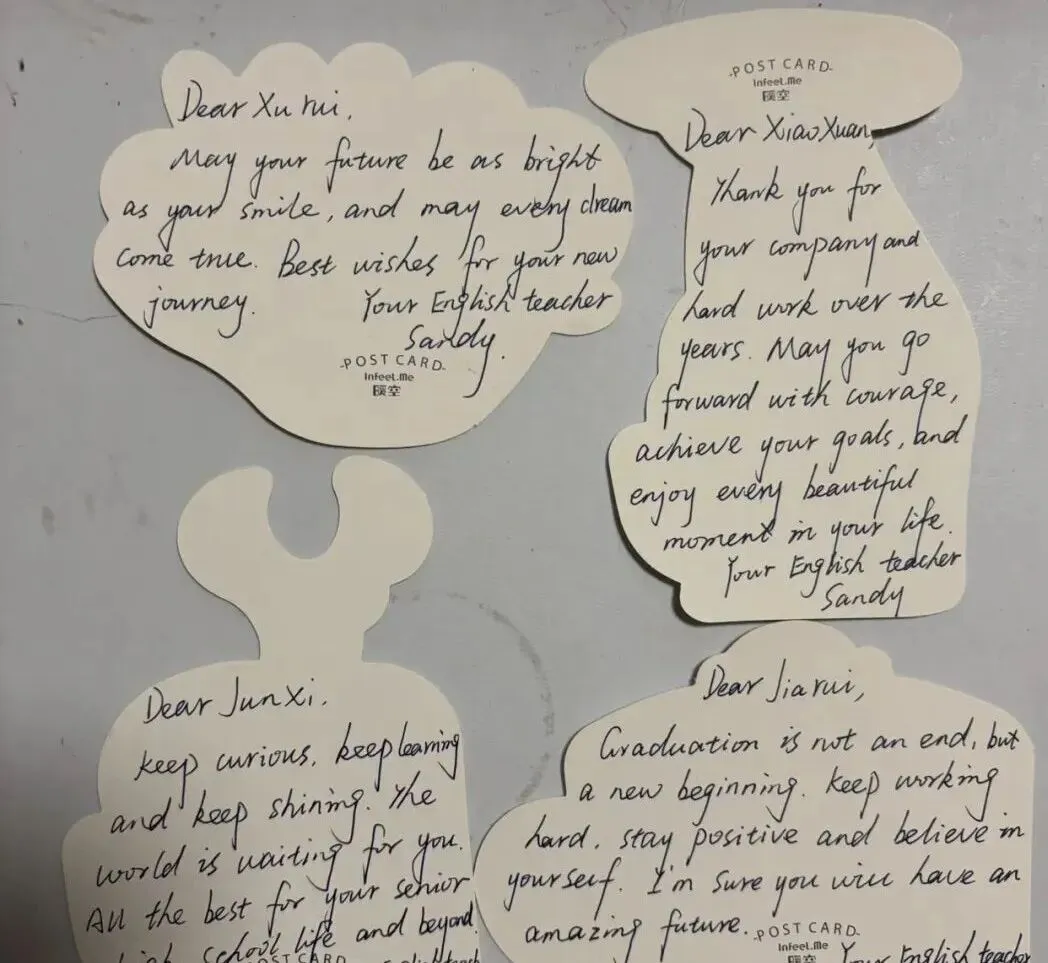 Dear Xu rui,
May your future be as bright
as your smile, and may every dream
come true. Best wishes for your new
journey.
Your English teacher
Sandy.
-POST CARD-
Infeel.Me
暖空
-POST CARD-
Infeel.Me
暖空
Dear XiaoXuan,
Thank you for
your company and
hard work over the
years. May you go
forward with courage,
achieve your goals, and
enjoy every beautiful
moment in your life.
Your English teacher
Sandy
Dear JunXi,
keep curious, keep learning
and keep shining. The
world is waiting for you.
All the best for your senior
high school life and beyond
POST CARD
Dear Jiarui,
Graduation is not an end, but
a new beginning. Keep working
hard, stay positive and believe in
yourself. I'm sure you will have an
amazing future.
-POST CARD-
Infeel.Me
暖空
Your English teacher